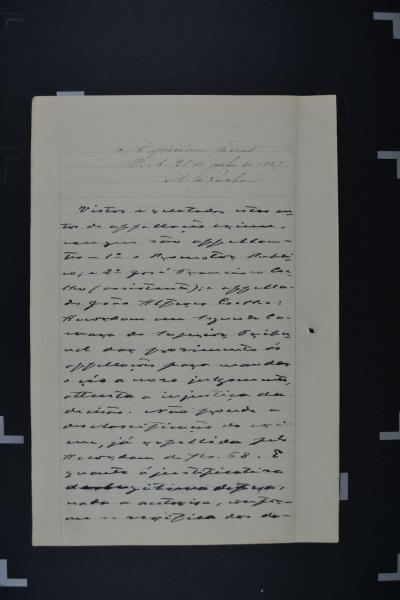 A proxima sessão
P. A. 28 de Junho de 1927
A. da Rocha
Vistos e relatados estes au-
tos de appellação crime,
em que são appellan-
tes - 1º o Promotor Publi-
co, e 2º José Francisco Co-
elho (assistente); e appella-
do João Coelho:
Accordam em Segunda Ca-
mara do Superior Tribu-
nal dar provimento ás
appellações para mandar
o réo a novo julgamento,
attenta a injustiça da
decisão. Não procede a
desclassificação do cri-
me, já repellida pelo
Accordam de fls. 68. E
quanto á justificativa
da legitima defesa,
nada a autorisa, confor-
me se verifica dos de-